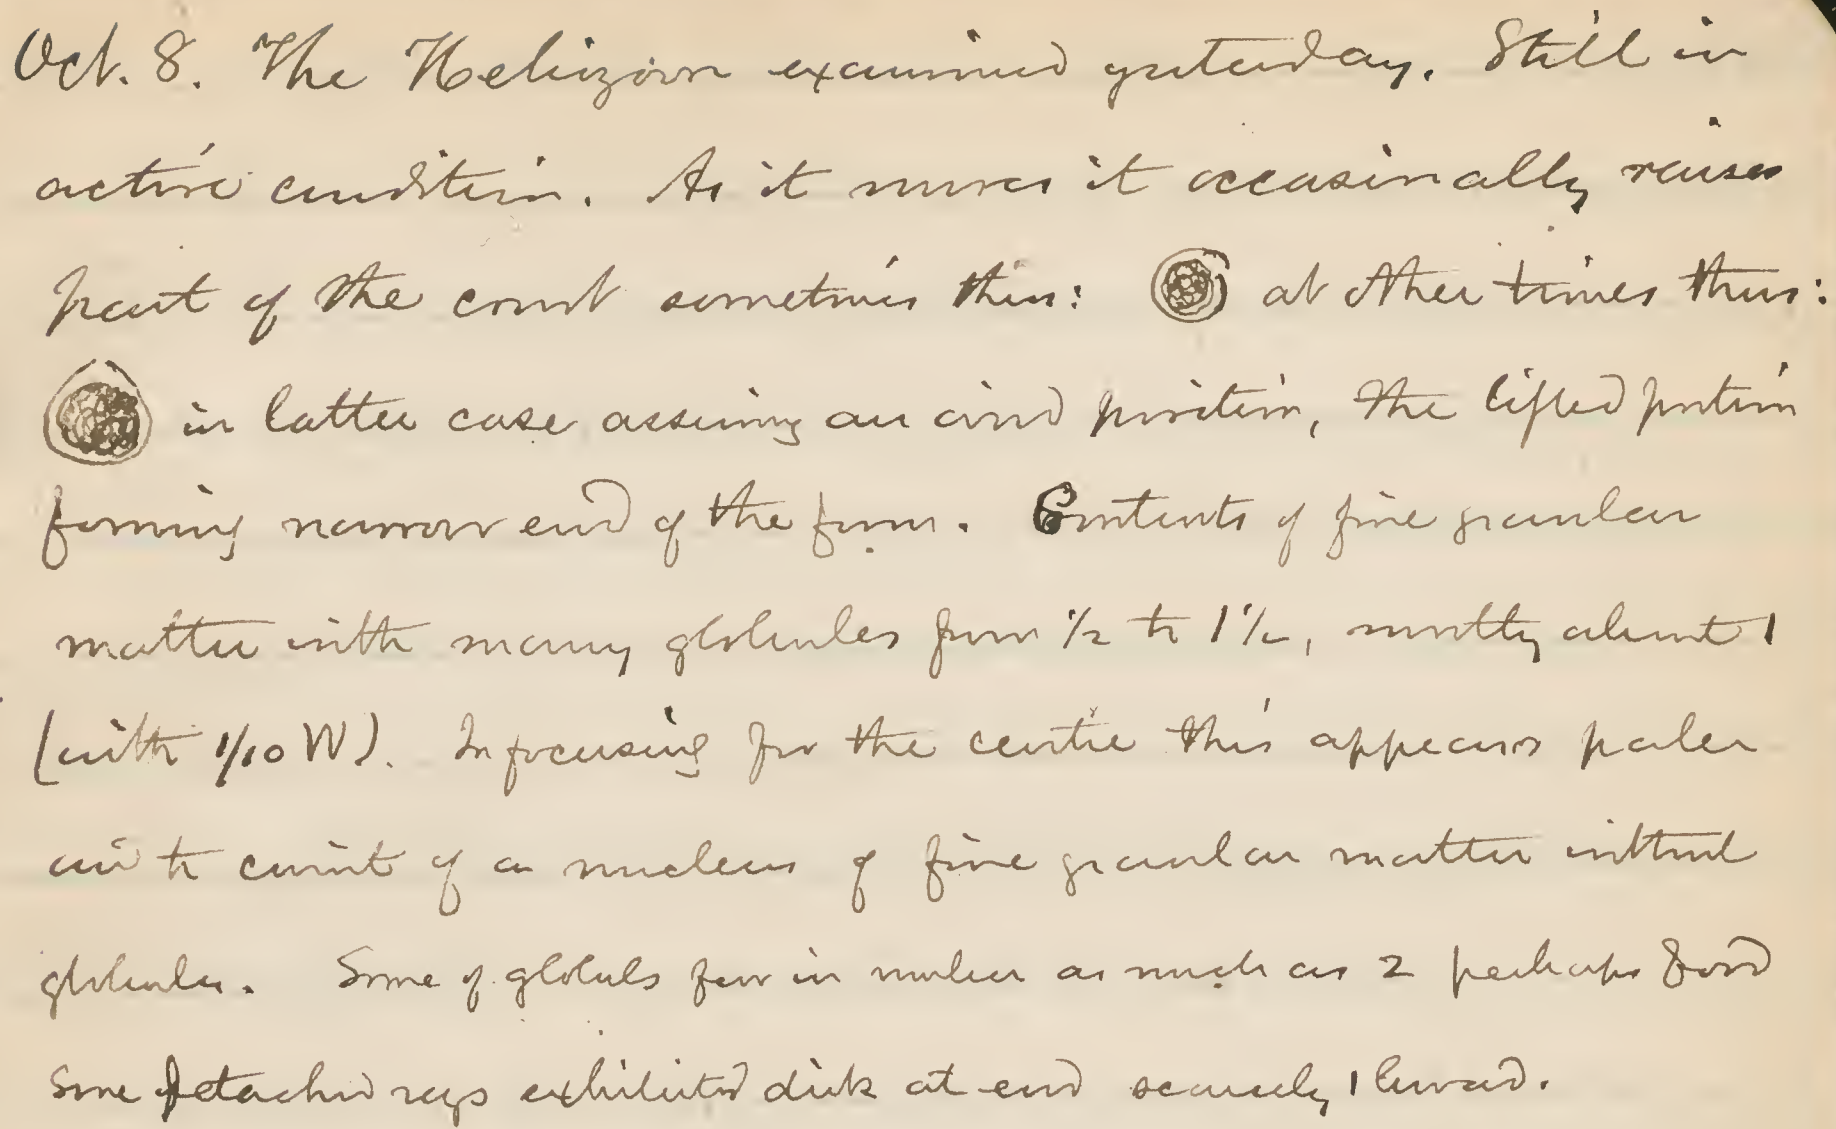 Oct. 8. The Heliozoan examined yesterday. Still in
active condition. As it moves it occasionally raises
part of the coat sometimes thus: at other times thus:
in latter case assuming an ovoid position, the lifted portion
forming narrow end of the form. Contents of fine granular
matter with many globules from 1/2 to 1 1/2, mostly about 1
(with 1/10 W). In focusing for the centre this appears paler
and to consist of a nucleus of fine granular matter without
globules. Some of globuls few in number as much as 2 perhaps food
Some detached rays exhibited disk at end scarcely 1 broad.